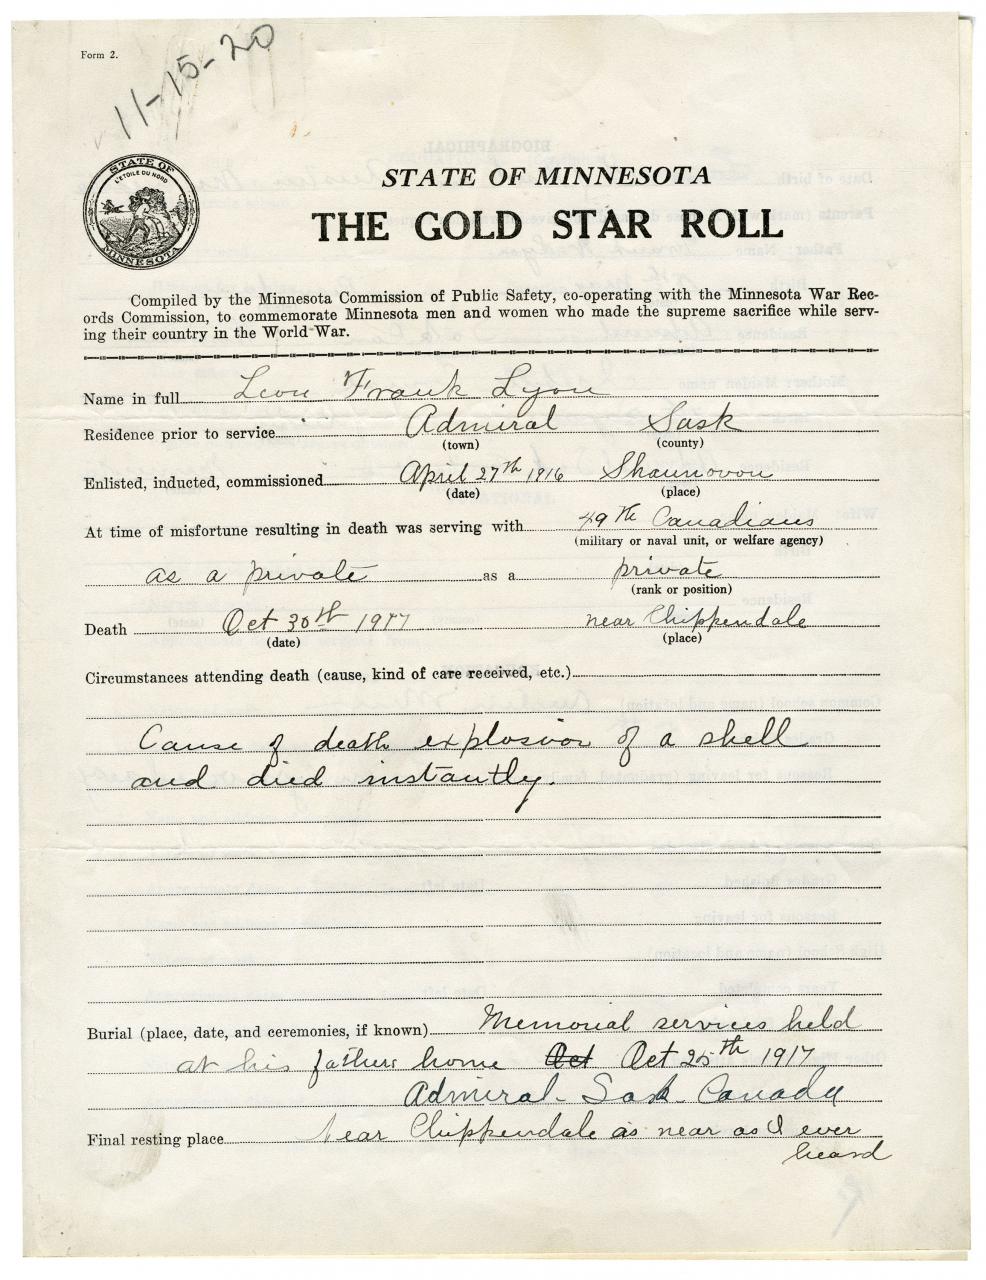 Form 2.
11-15-20
STATE OF
L'ETOILE DU NORD
MINNESOTA
STATE OF MINNESOTA
THE GOLD STAR ROLL
Compiled by the Minnesota Commission of Public Safety, co-operating with the Minnesota War Rec-
ords Commission, to commemorate Minnesota men and women who made the supreme sacrifice while serv-
ing their country in the World War.
Name in full Leon Frank Lyon
Residence prior to service Admiral Sask
(town) (county)
Enlisted, inducted, commissioned April 27th 1916 Shaunovon
(date) (place)
At time of misfortune resulting in death was serving with 49th Canadians
(military or naval unit, or welfare agency)
as a private as a private
(rank or position)
Death Oct 30th 1917 near Chippendale
(date) (place)
Circumstances attending death (cause, kind of care received, etc.)
Cause of death explosion of a shell
and died instantly.
Burial (place, date, and ceremonies, if known) Memorial services held
at his fathers home Oct Oct 25th 1917
Admiral- Sask- Canada
Final resting place Near Chippendale as near as I ever
heard